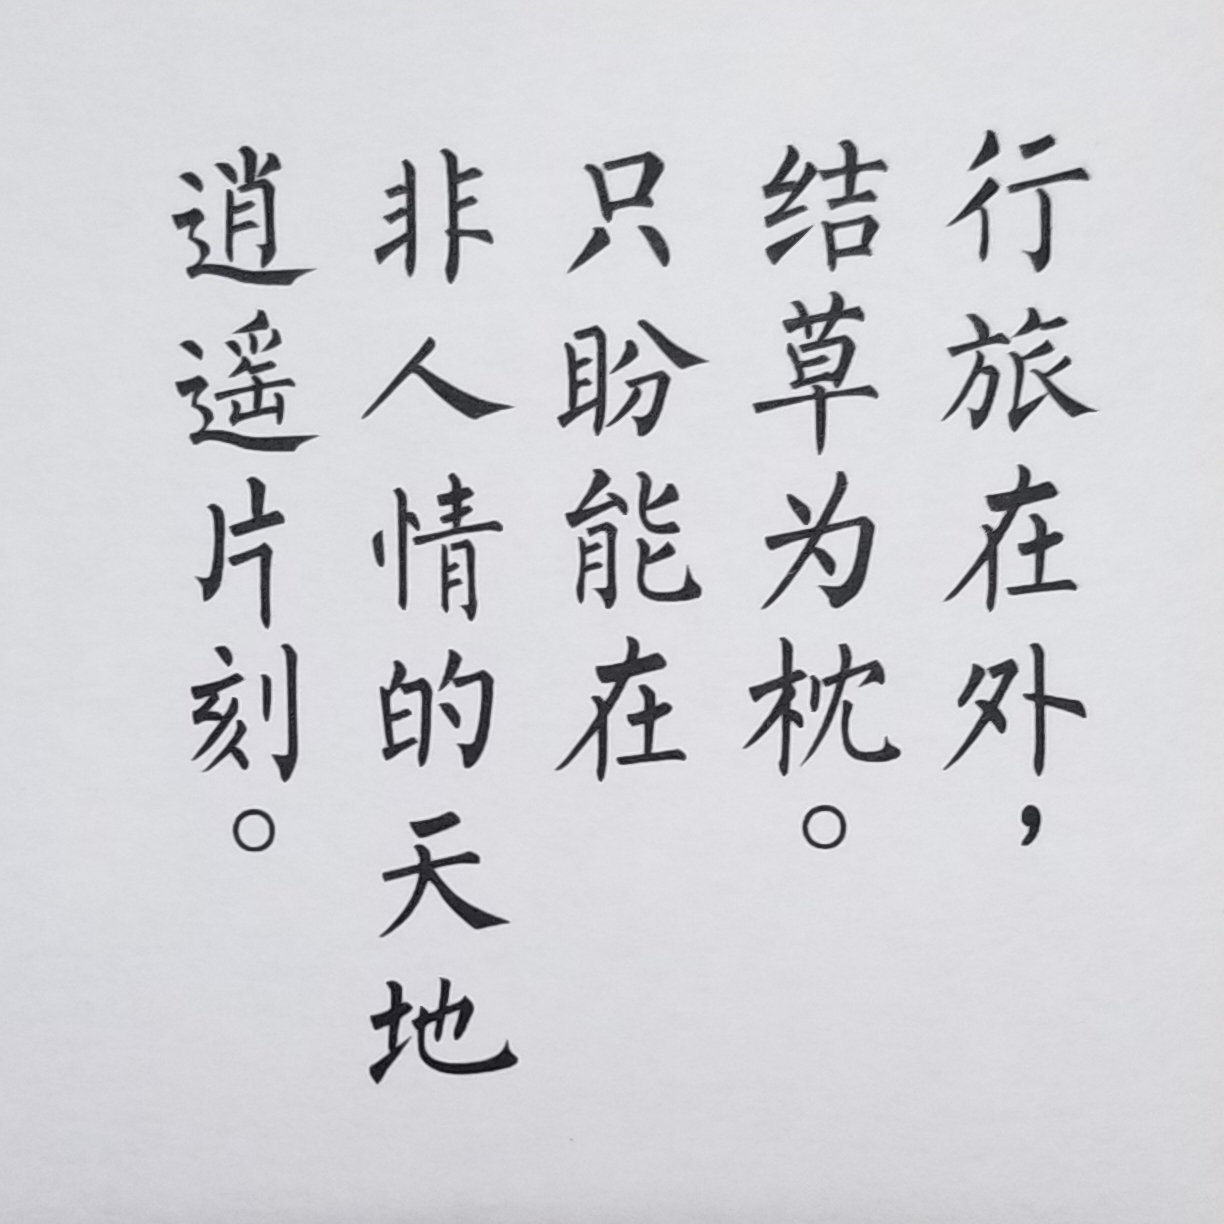 行旅在外，
结草为枕。
只盼能在
非人情的天地
逍遥片刻。